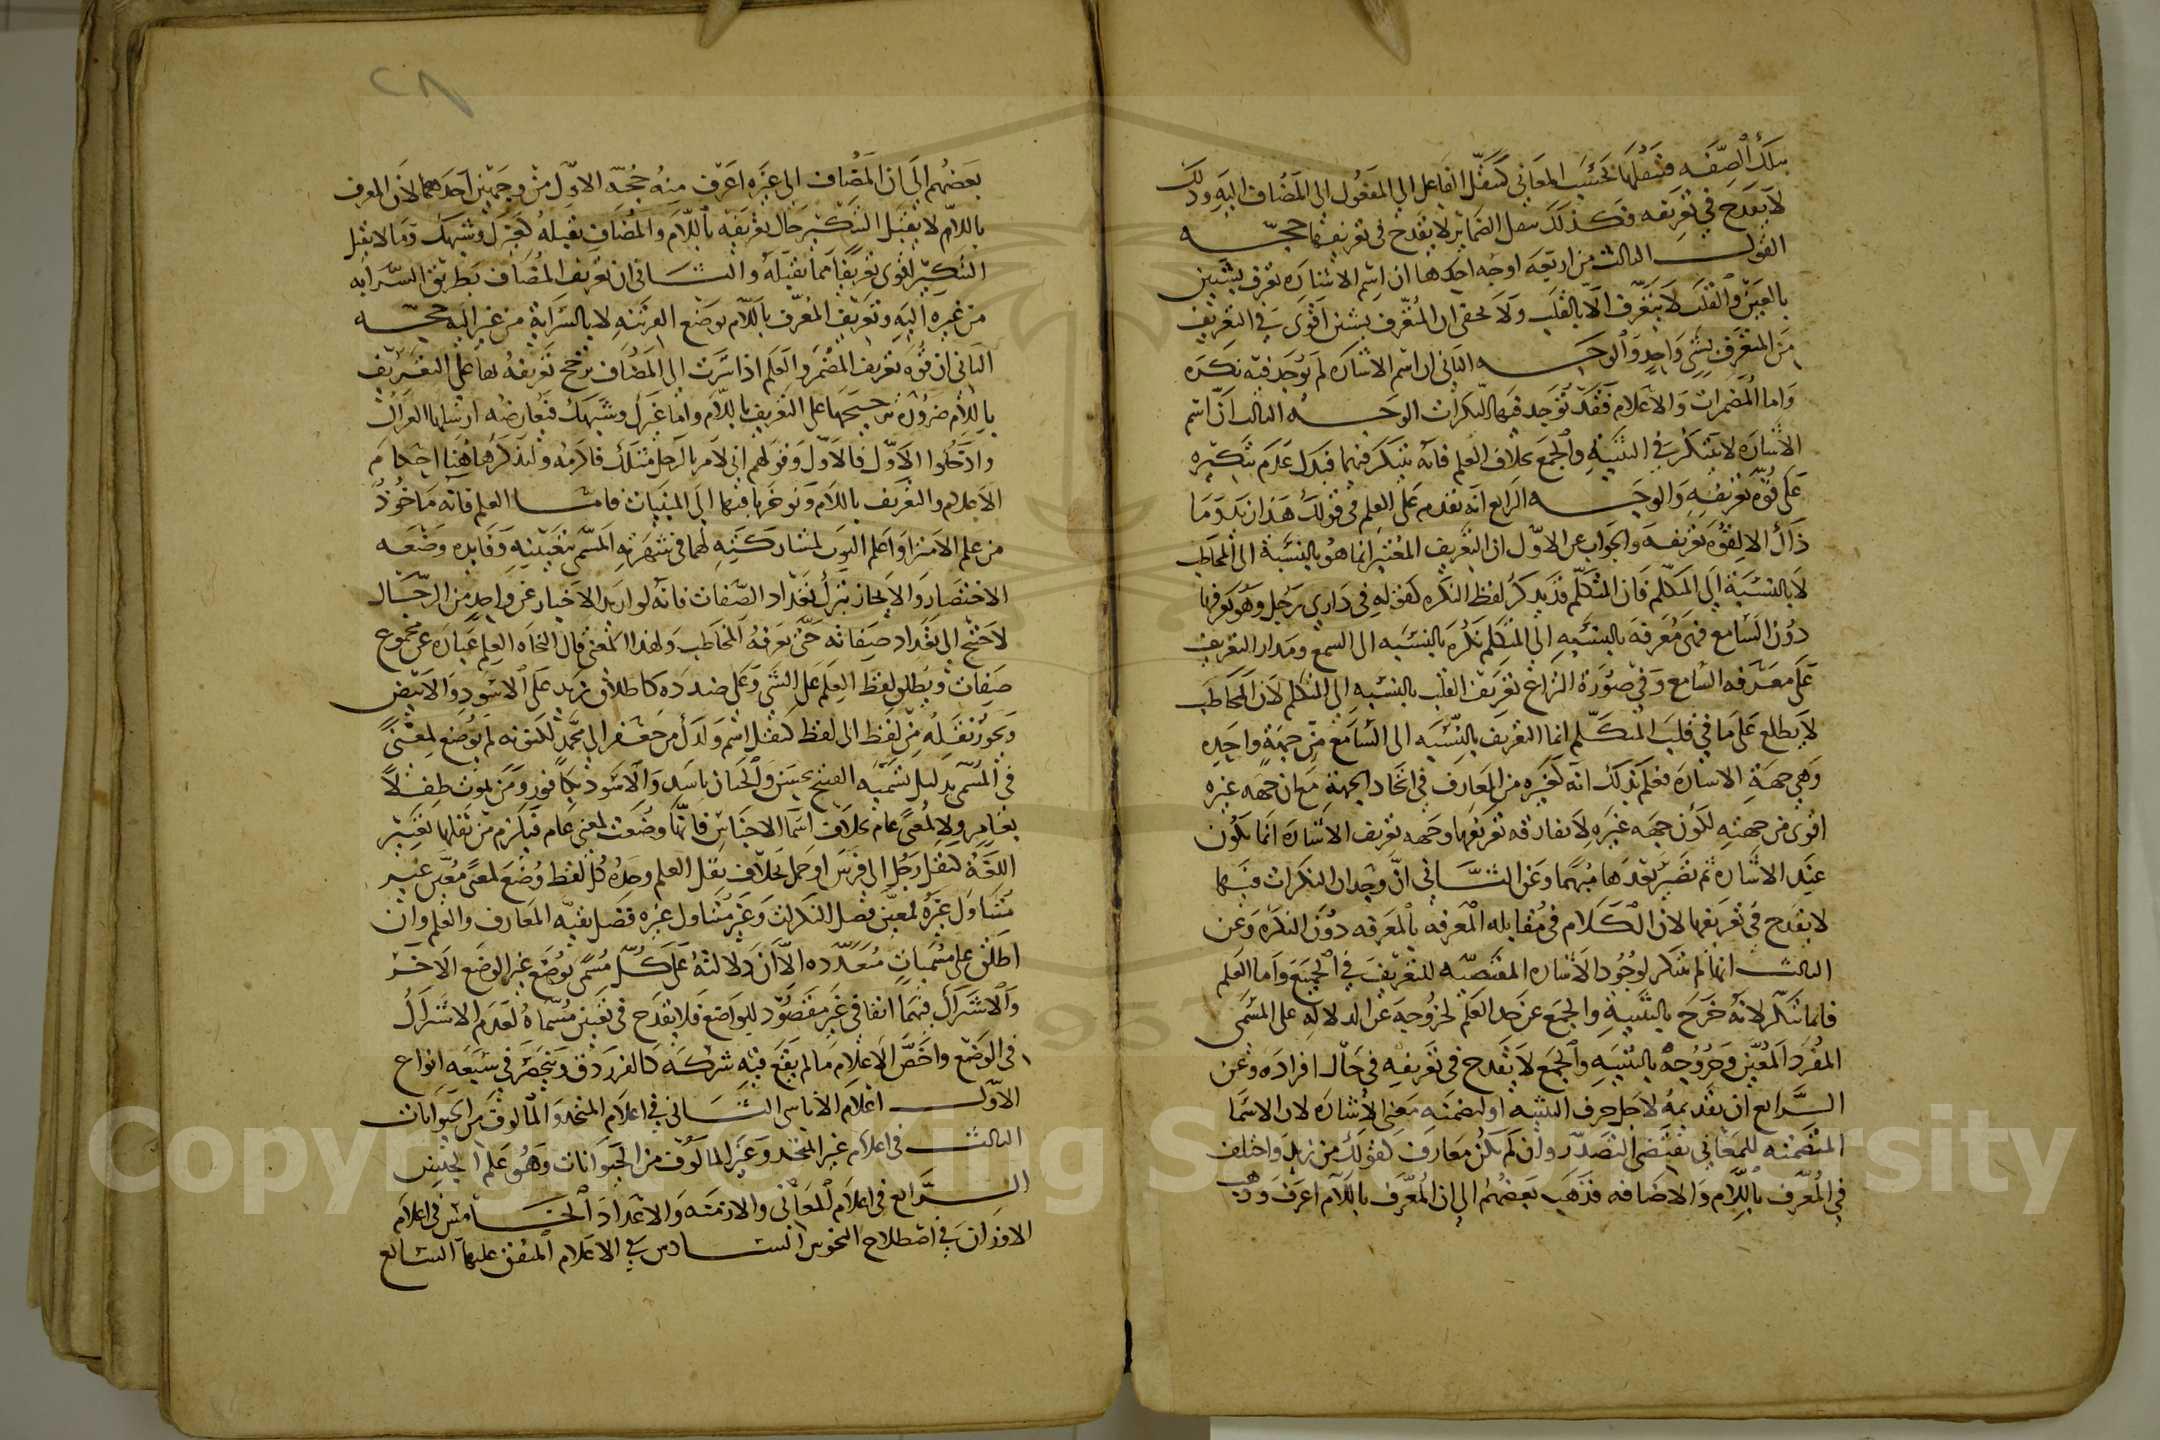 بتلك الصفة فتنقلها بحسب المعاني كتنقل الفاعل الى المفعول الى المضاف اليه وذلك
لا يقدح في تعريفه فكذلك تنقل الضمائر لا يقدح في تعريفها حجة
القول الثالث من اربعة اوجه احدها ان اسم الاشارة تعرف بشيئين
بالعين والقلب لا يتعرف الا بالقلب ولا يخفى ان المتعرف بشيئين اقوى في التعريف
من المتعرف بشيء واحد والوجه الثاني ان اسم الاشارة لم يوجد فيه نكرة
واما المضمرات والاعلام فقد توجد فيها النكرات الوجه الثالث ان اسم
الاشارة لا يتنكر في التثنية والجمع بخلاف العلم فانه يتنكر فيهما فيدل عدم تنكيره
على قوة تعريفه والوجه الرابع انه تقدم على العلم في قولك هذا زيد وما
ذاك الا لقوة تعريفه والجواب عن الاول ان التعريف المعتبر انما هو بالنسبة الى المخاطب
لا بالنسبة الى المتكلم فان المتكلم قد يذكر لفظ النكرة كقوله في داري رجل وهو يعرفها
دون السامع فهي معرفة بالنسبة الى المتكلم نكرة بالنسبة الى السمع ومدار التعريف
على معرفة السامع وفي صورة النزاع تعريف القلب بالنسبة الى المتكلم لان المخاطب
لا يطلع على ما في قلب المتكلم انما التعريف بالنسبة الى السامع من جهة واحدة
وهي جهة الاشارة فعلم بذلك انه كغيره من المعارف في اتحاد الجهة مع ان جهة غيره
اقوى من جهته لكون جهة غيره لا تفارقه تعريفها وجهة تعريف الاشارة انما تكون
عند الاشارة ثم تصير بعدها مبهما وعن الثاني ان وجدان النكرات فيها
لا يقدح في تعريفها لان الكلام في مقابلة المعرفة بالمعرفة دون النكرة وعن
الثالث انها لم تتنكر لوجود الاشارة المقتضية للتعريف في الجميع واما العلم
فانما تنكر لانه خرج بالتثنية والجمع عن حد العلم لخروجه عن الدلالة على المسمى
المفرد المعين وخروجه بالتثنية والجمع لا يقدح في تعريفه في حال افراده وعن
الرابع ان تقديمه لاجل حرف التنبيه او لتضمنه معنى الاشارة لان الاسما
المتضمنه للمعاني تقتضى التصدر وان لم تكن معارف كقولك من زيد واختلف
في المعرف باللام والاضافة فذهب بعضهم الى ان المعرف باللام اعرف وذهب
بعضهم الى ان المضاف الى غيره اعرف منه حجة الاول من وجهين احدهما لان المعرف
باللام لا يقبل التنكير حال تعريفه باللام والمضاف يقبله كغيرك وشبهك وما لا يقبل
التنكير اقوى تعريفا مما يقبله والثاني ان تعريف المضاف بطريق السراية
من غيره اليه وتعريف المعرف باللام بوضع القرينة لا بالسراية من غير اليه حجة
الثاني ان قوة تعريف المضمر والعلم اذا سرت الى المضاف ترجح تعريفه بها على التعريف
باللام ضرورة ترجيحها على التعريف باللام واما غيرك وشبهك فتعارضه ارسلها العراك
وادخلوا الاول فالاول وقولهم اني لامر بالرجل مثلك فاكرمه ولنذكر هاهنا احكام
الاعلام والتعريف باللام ونوخر باقيها الى المبنيات فامـا العلم فانه ماخوذ
من علم الامير او اعلم الثوب لمشاركته لهما في شهرة المسمى بتعيينه وفايدة وضعه
الاختصار والايجاز بترك تعداد الصفات فانه لو اريد الاخبار عن واحد من الرجال
لاحتيج الى تعداد صفاته حتى يعرفه المخاطب ولهذا المعنى قال النحاه العلم عبارة عن مجموع
صفات ويطلق لفظ العلم على الشي وعلى ضده كاطلاق زيد على الاسود والابيض
ويجوز نقله من لفظ الى لفظ كنقل اسم ولدك من جعفر الى محمد لكونه لم يوضع لمعنى
في المسمى بدليل تسمية القبيح بحسن والجبان باسد والاسود بكافور ومن يموت طفلا
بعامر ولا لمعنى عام بخلاف اسما الاجناس فانها وضعت لمعنى عام فيلزم من نقلها تغيير
اللغة كنقل رجل الى فرس او جمل بخلاف نقل العلم وحده كل لفظ وضع لمعنى معين غير
متناول غيره لمعين فصل النكرات وغير متناول غيره فصل بقية المعارف والعلم وان
اطلق على مسميات متعددة الا ان دلالته على كل مسمى بوضع غير الوضع الاخر
والاشتراك فيهما اتفاقي غير مقصود للواضع فلا يقدح في تعيين مسماه لعدم الاشتراك
في الوضع واخص الاعلام ما لم يقع فيه شركة كالفرزدق وينحصر في سبعة انواع
الاول اعلام الاناسي الثاني في اعلام المتخذ والمالوف من الحيوانات
الثالث في اعلام غير المتخذ وغير المالوف من الحيوانات وهو علم الجنس
الرابع في اعلام المعاني والازمنة والاعداد الخامس في اعلام
الاوزان في اصطلاح النحويين السادس في الاعلام المتفق عليها السابع